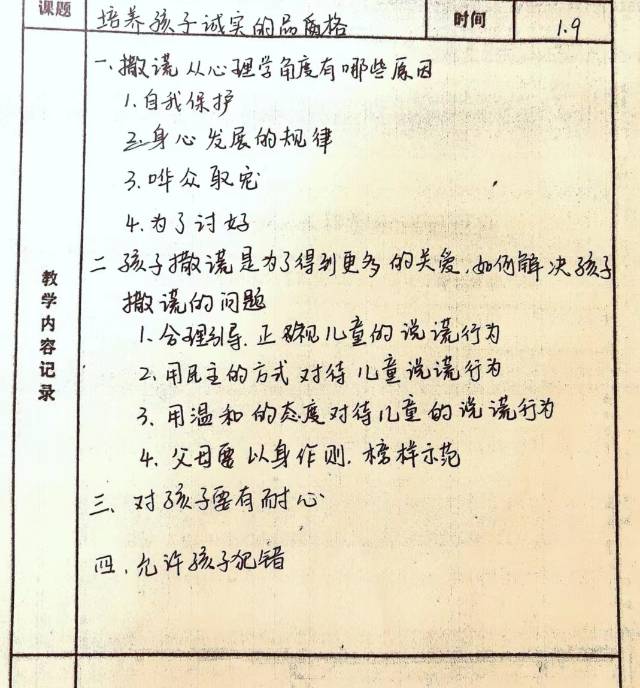 课题 培养孩子诚实的品质格 时间 1.9
一、撒谎从心理学角度有哪些原因
1.自我保护
2.身心发展的规律
3.哗众取宠
4.为了讨好
二孩子撒谎是为了得到更多的关爱,如何解决孩子
撒谎的问题
1、合理引导.正确视儿童的说谎行为
2.用民主的方式对待儿童说谎行为
3.用温和的态度对待儿童的说谎行为
4.父母要以身作则.榜样示范
三、对孩子要有耐心
四.允许孩子犯错
教学内容记录